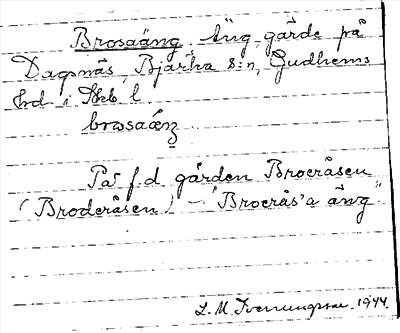 Brosaäng. Äng, gärde på
Dagsnäs, Bjärka s:n, Gudhems
hrd i Skb l
brωsaæŋ
På f.d. gården Broeråsen
(Broderåsen) – "Broerås'a äng"
L. M. Svenungsson 1944.